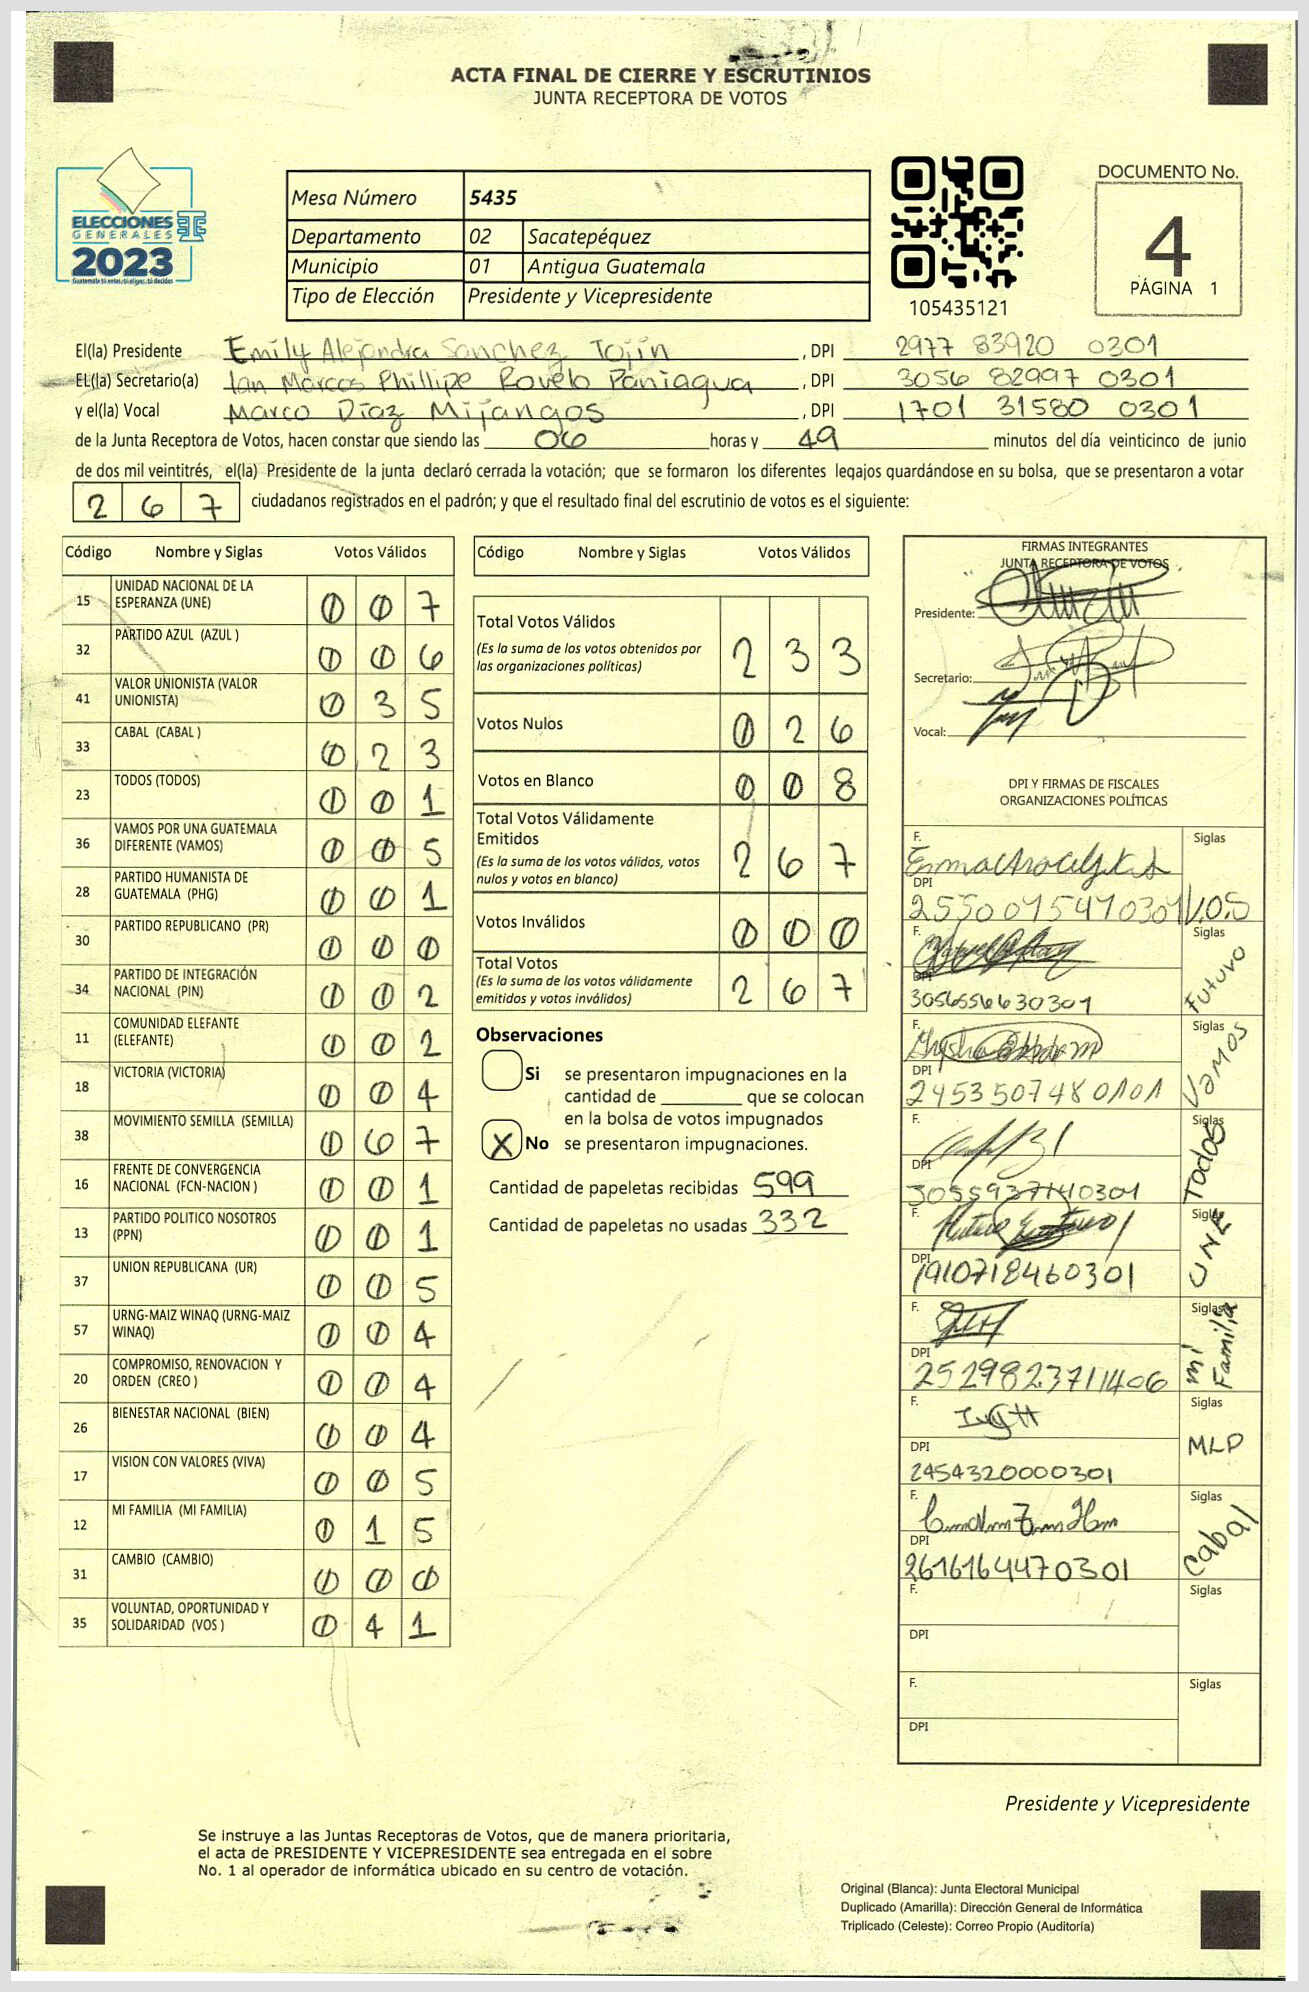 ACTA FINAL DE CIERRE Y ESCRUTINIOS
JUNTA RECEPTORA DE VOTOS
ELECCIONES
GENERALES
2023
Mesa Número 5435
Departamento 02 Sacatepéquez
Municipio 01 Antigua Guatemala
Tipo de Elección Presidente y Vicepresidente
105435121
DOCUMENTO No.
4
PÁGINA 1
El(la) Presidente Emily Alejandra Sanchez Tojín , DPI 2977 83920 0301
EL(la) Secretario(a) Ian Marcos Phillipe Rovelo Paniagua , DPI 3056 82997 0301
y el(la) Vocal Marco Díaz Mijangos , DPI 1701 31580 0301
de la Junta Receptora de Votos, hacen constar que siendo las 06 horas y 49 minutos del día veinticinco de junio
de dos mil veintitrés, el(la) Presidente de la junta declaró cerrada la votación; que se formaron los diferentes legajos guardándose en su bolsa, que se presentaron a votar
2 6 7 ciudadanos registrados en el padrón; y que el resultado final del escrutinio de votos es el siguiente:
Código Nombre y Siglas Votos Válidos
15 UNIDAD NACIONAL DE LA
ESPERANZA (UNE) 0 0 7
32 PARTIDO AZUL (AZUL ) 0 0 6
41 VALOR UNIONISTA (VALOR
UNIONISTA) 0 3 5
33 CABAL (CABAL ) 0 2 3
23 TODOS (TODOS) 0 0 1
36 VAMOS POR UNA GUATEMALA
DIFERENTE (VAMOS) 0 0 5
28 PARTIDO HUMANISTA DE
GUATEMALA (PHG) 0 0 1
30 PARTIDO REPUBLICANO (PR) 0 0 0
34 PARTIDO DE INTEGRACIÓN
NACIONAL (PIN) 0 0 2
11 COMUNIDAD ELEFANTE
(ELEFANTE) 0 0 2
18 VICTORIA (VICTORIA) 0 0 4
38 MOVIMIENTO SEMILLA (SEMILLA) 0 6 7
16 FRENTE DE CONVERGENCIA
NACIONAL (FCN-NACION ) 0 0 1
13 PARTIDO POLITICO NOSOTROS
(PPN) 0 0 1
37 UNION REPUBLICANA (UR) 0 0 5
57 URNG-MAIZ WINAQ (URNG-MAIZ
WINAQ) 0 0 4
20 COMPROMISO, RENOVACION Y
ORDEN (CREO ) 0 0 4
26 BIENESTAR NACIONAL (BIEN) 0 0 4
17 VISION CON VALORES (VIVA) 0 0 5
12 MI FAMILIA (MI FAMILIA) 0 1 5
31 CAMBIO (CAMBIO) 0 0 0
35 VOLUNTAD, OPORTUNIDAD Y
SOLIDARIDAD (VOS ) 0 4 1
Código Nombre y Siglas Votos Válidos
Total Votos Válidos
(Es la suma de los votos obtenidos por
las organizaciones políticas) 2 3 3
Votos Nulos 0 2 6
Votos en Blanco 0 0 8
Total Votos Válidamente
Emitidos
(Es la suma de los votos válidos, votos
nulos y votos en blanco) 2 6 7
Votos Inválidos 0 0 0
Total Votos
(Es la suma de los votos válidamente
emitidos y votos inválidos) 2 6 7
Observaciones
Si se presentaron impugnaciones en la
cantidad de ________ que se colocan
en la bolsa de votos impugnados
X No se presentaron impugnaciones.
Cantidad de papeletas recibidas 599
Cantidad de papeletas no usadas 332
FIRMAS INTEGRANTES
JUNTA RECEPTORA DE VOTOS
Presidente:
Secretario:
Vocal:
DPI Y FIRMAS DE FISCALES
ORGANIZACIONES POLÍTICAS
F. Siglas
DPI
V.O.S
F. Siglas
Futuro
DPI
3056556630301
F. Siglas
Vamos
DPI
2453507480101
F. Siglas
Todos
DPI
3055937140301
F. Siglas
UNE
DPI
1910718460301
F. Siglas
mi
Familia
DPI
2529823711406
F. Siglas
MLP
DPI
2454320000301
F. Siglas
Cabal
DPI
2616164470301
F. Siglas
DPI
F. Siglas
DPI
Presidente y Vicepresidente
Se instruye a las Juntas Receptoras de Votos, que de manera prioritaria,
el acta de PRESIDENTE Y VICEPRESIDENTE sea entregada en el sobre
No. 1 al operador de informática ubicado en su centro de votación.
Original (Blanca): Junta Electoral Municipal
Duplicado (Amarilla): Dirección General de Informática
Triplicado (Celeste): Correo Propio (Auditoría)